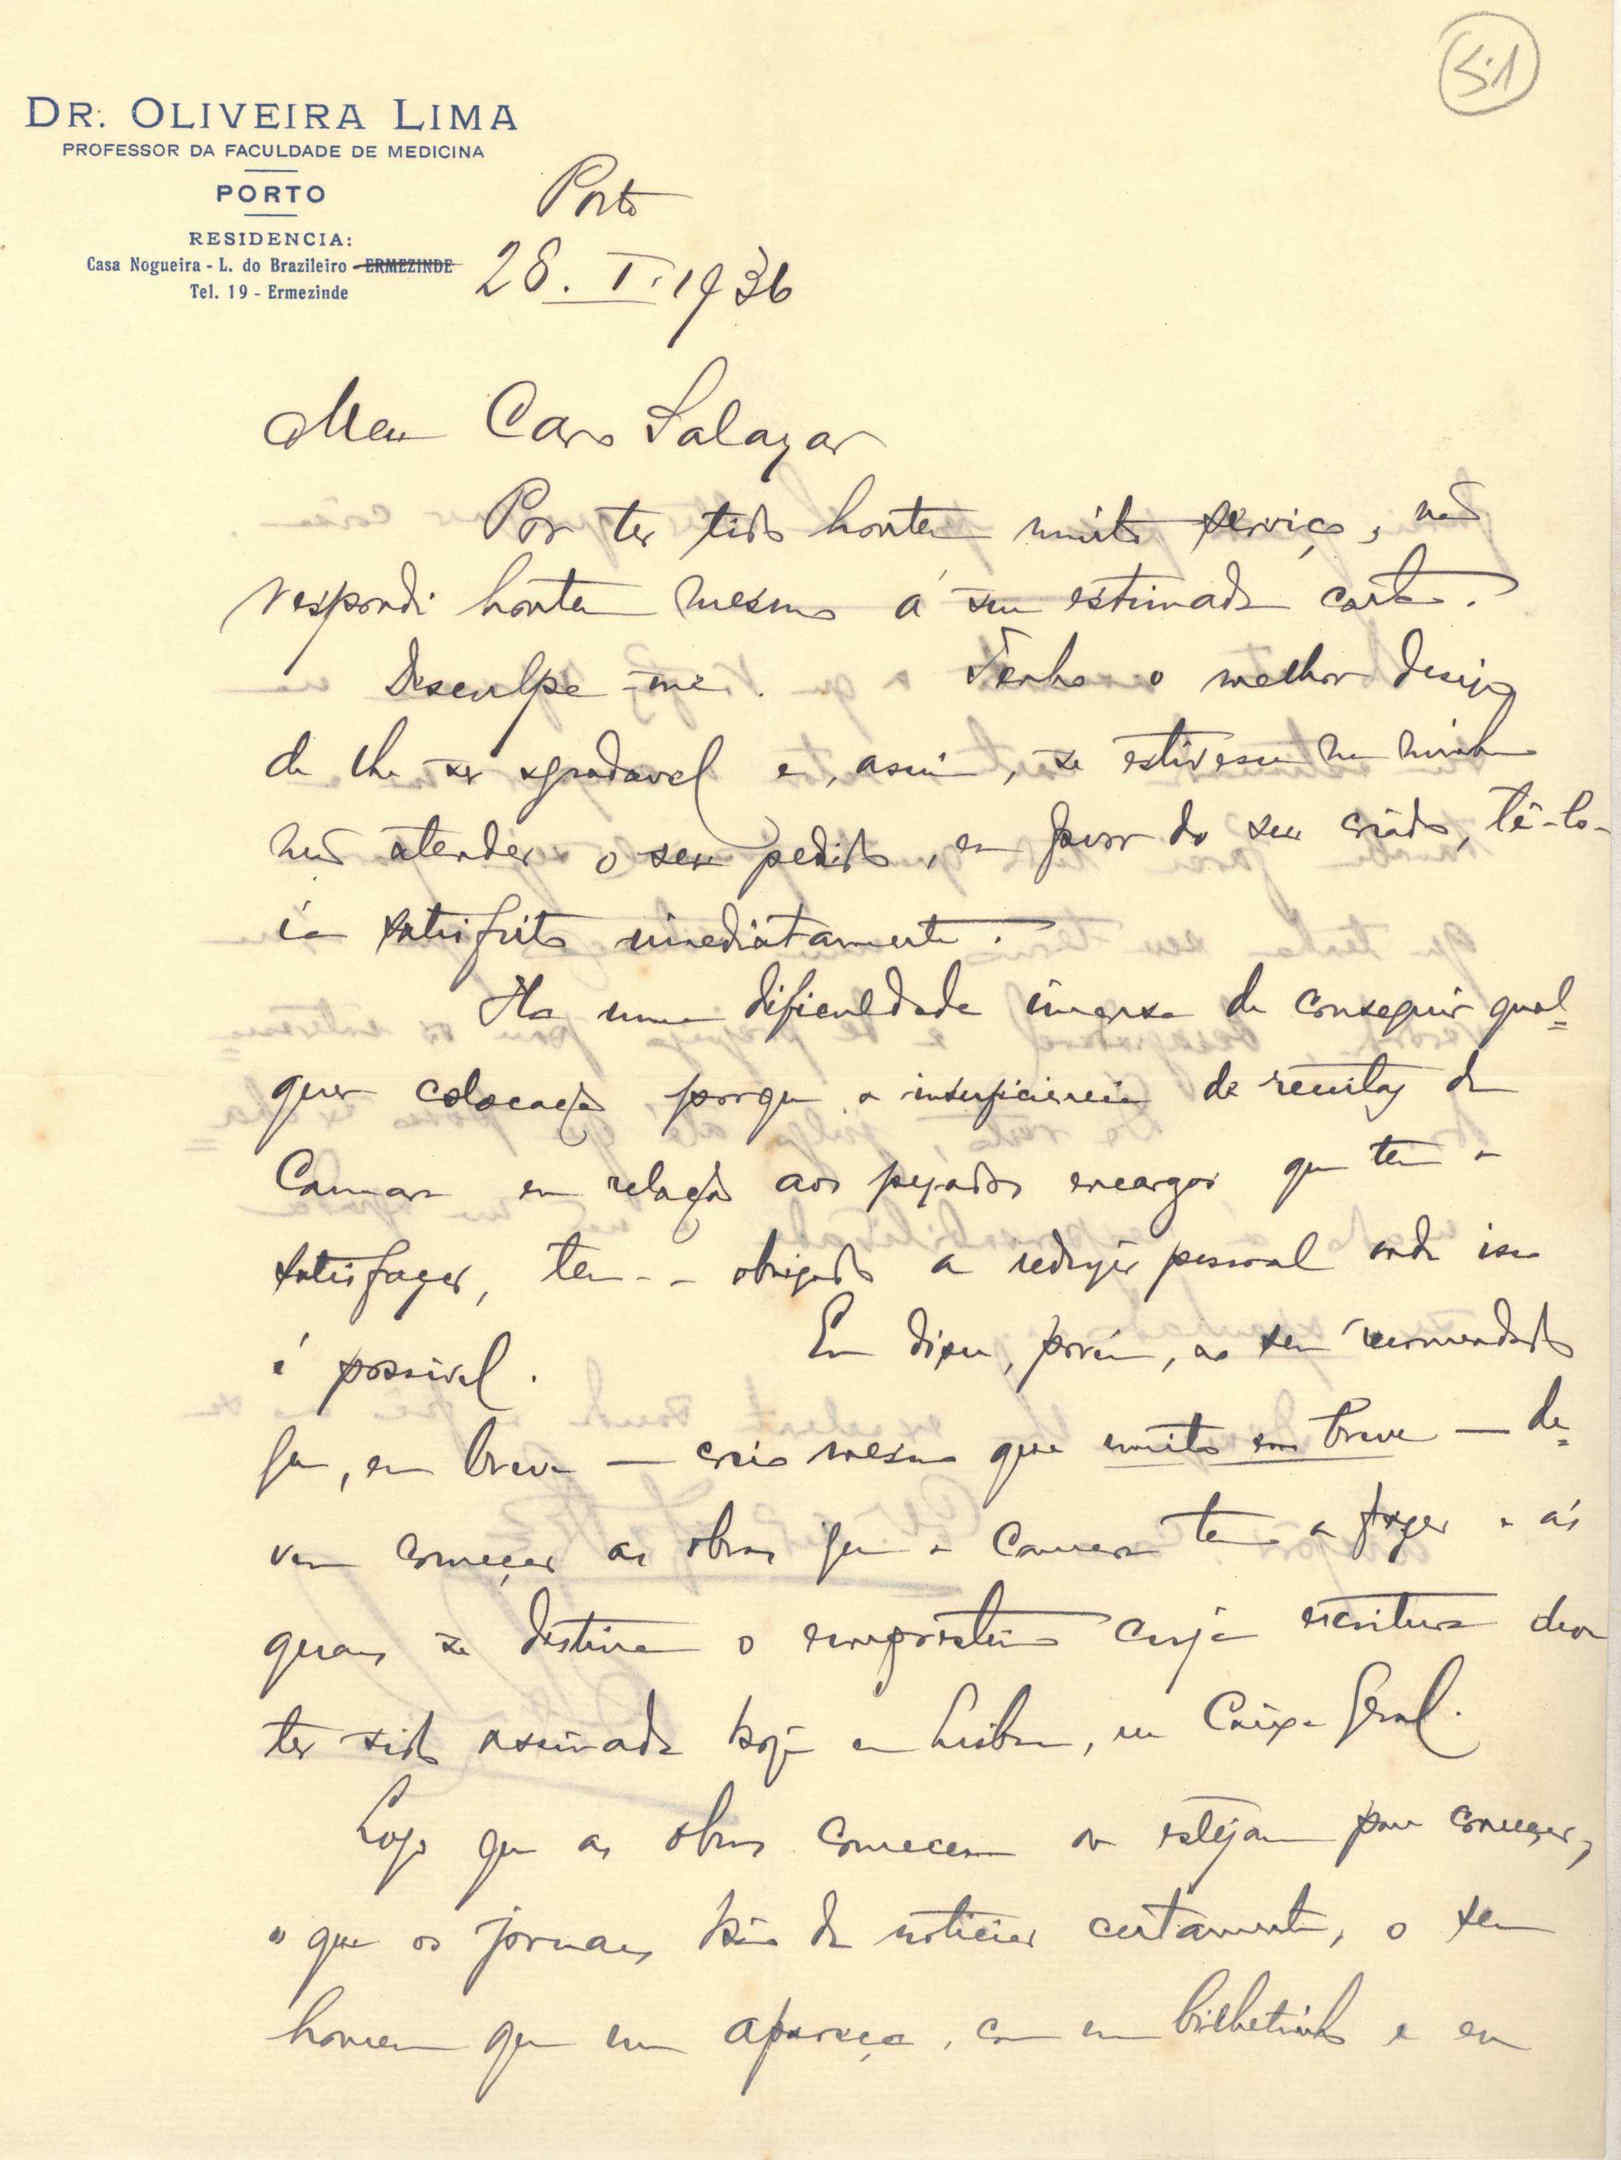 51
DR. OLIVEIRA LIMA
PROFESSOR DA FACULDADE DE MEDICINA
PORTO
RESIDENCIA:
Casa Nogueira - L. do Brazileiro - ERMEZINDE
Tel. 19 - Ermezinde
Porto
28. I. 1936
Meu Caro Salazar
Por ter tido hontem muito serviço, não
respondi hontem mesmo á sua estimada carta.
Desculpe-me. Tenho o melhor desejo
de lhe ser agradavel e, assim, se estivesse na minha
mão atender o seu pedido, em favor do seu criado, tê-lo-
ia satisfeito imediatamente.
Ha uma dificuldade imensa de conseguir qual=
quer colocação porque a insuficiencia de receitas da
Camara em relação aos pezados encargos que tem a
satisfazer, tem-a obrigado a reduzir pessoal onde isso
é possivel. Eu disse, porém, ao seu recomendado
que, em breve — creio mesmo que muito em breve — de=
vem começar as obras que a Camara tem a fazer e ás
quaes se destina o emprestimo cuja escritura deve
ter sido assinada hoje em Lisboa, na Caixa Geral.
Logo que as obras comecem ou estejam para começar,
o que os jornaes hão de noticiar certamente, o seu
homem que me apareça, com um bilhetinho e eu